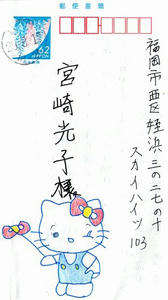 郵便書簡
62
NIPPON
福岡市西区姪浜三の二七の十
スカイハイツ
103
宮崎光子様